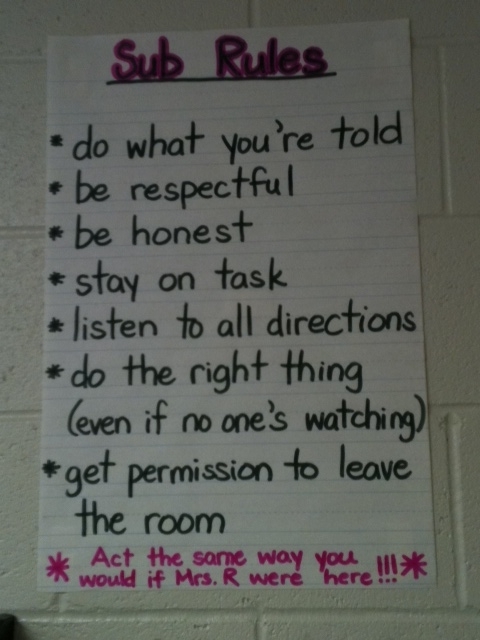 Sub Rules
* do what you're told
* be respectful
* be honest
* stay on task
* listen to all directions
* do the right thing
(even if no one's watching)
* get permission to leave
the room
* Act the same way you
would if Mrs. R were here!!! *